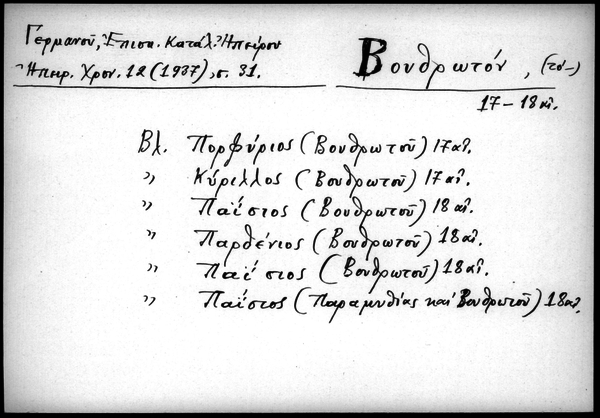 Γερμανοῦ, Ἐπισκ. Κατάλ. Ἠπείρου
Ἠπειρ. Χρον. 12 (1937), σ. 31.
Βονθρωτόν, (τό-)
17-18 αἰ.
Βλ. Πορφύριος (Βονθρωτοῦ) 17 αἰ.
" Κύριλλος (Βονθρωτοῦ) 17 αἰ.
" Παΐσιος (Βονθρωτοῦ) 18 αἰ.
" Παρθένιος (Βονθρωτοῦ) 18 αἰ.
" Παΐσιος (Βονθρωτοῦ) 18 αἰ.
" Παΐσιος (Παραμυθίας καί Βονθρωτοῦ) 18 αἰ.